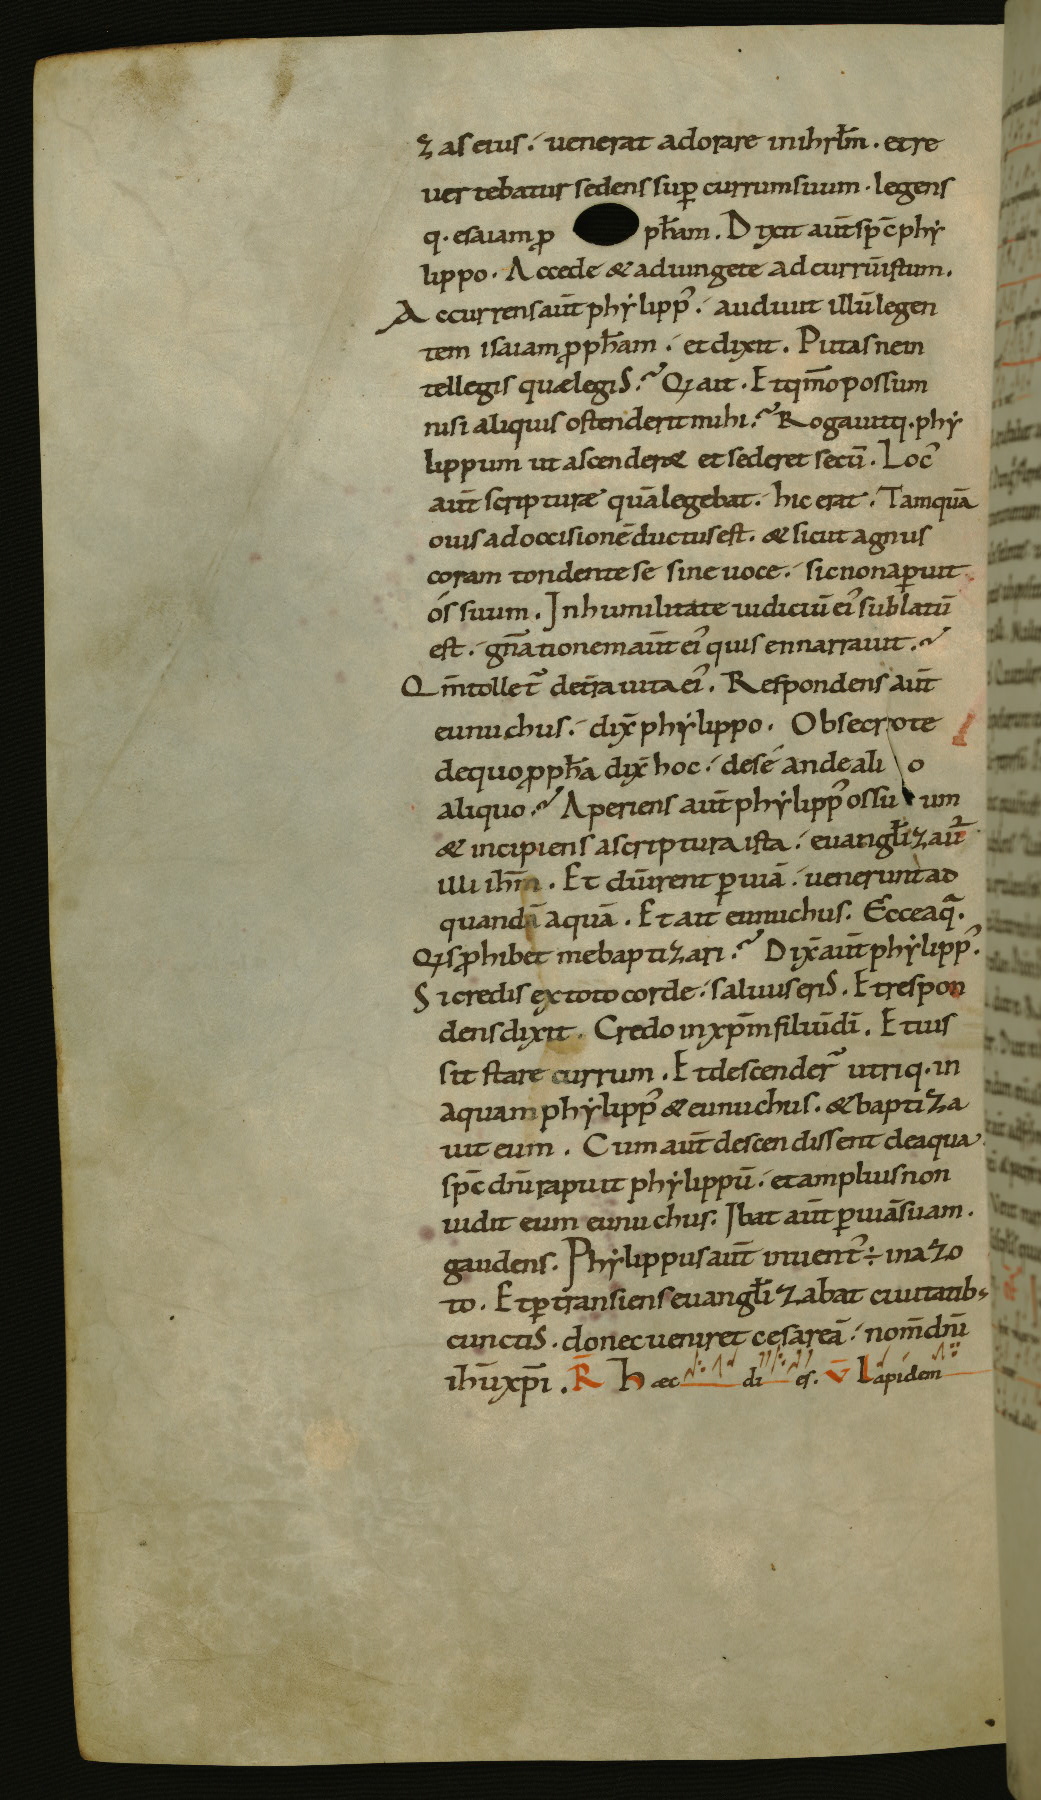 zas eius. uenerat adorare in ihrl̄m. et re
uertebatur sedens sup̄ currum suum. legens
q. esaiam ꝓ ph̄am. Dixit aut̄ sp̄c phy
lippo. Accede & adiunge te ad currū istum.
Accurrens aut̄ phylipp᾿. audiuit illū legen
tem isaiam ꝓph̄am. et dixit. Putasne in
tellegis quæ legis. Qi ait. Et qm̄o possum
nisi aliquis ostenderit mihi. Rogauitq. phy
lippum ut ascender& et sederet secū. Loc᾿
aut̄ scripturæ quā legebat. hic erat. Tamquā
ouis ad occisionē ductus est. & sicut agnus
coram tondente se sine uoce. sic non aꝑuit
ós suum. In humilitate iudiciū ei᾿ sublatū
est. gn̄ationem aut̄ ei᾿ quis ennarrauit.
Qm̄ tollet᾿ de tr̄a uita ei᾿. Respondens aut̄
eunuchus. dix̄ phylippo. Obsecro te
de quo ꝓph̄a dix̄ hoc. de sé an de ali o
aliquo. Aperiens aut̄ phylipp᾿ os suum
& incipiens a scriptura ista. euangl̄izaut̄
illi ihm̄. Et dū irent ꝑ uiā. uenerunt ad
quandā aquā. Et ait eunuchus. Ecce aq̄.
Qis ꝓhibet me baptizari. Dix̄ aut̄ phylipp᾿.
Si credis ex toto corde. saluus eris. Et respon
dens dixit. Credo in xp̄m filiū dī. Et ius
sit stare currum. Et descender᾿ utriq. in
aquam phylipp᾿ & eunuchus. & baptiza
uit eum. Cum aut̄ descendissent de aqua
sp̄c dn̄i rapuit phylippū. et amplius non
uidit eum eunuchus. Ibat aut̄ ꝑ uiā suam.
gaudens. Phylippus aut̄ inuent᾿ ÷ in azo
to. Et ꝑtransiens euangl̄izabat ciuitatib;
cunctis. donec ueniret cesareā. nom̄ dn̄i
ihū xp̄i. R̄ Haec di es. v̄ Lapidem